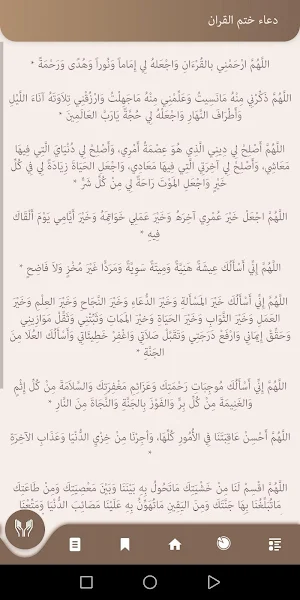 دعاء ختم القران
اللَّهُمَّ ارْحَمْنِي بالقُرْءَانِ وَاجْعَلهُ لِي إِمَاماً وَنُوراً وَهُدًى وَرَحْمَةً *
اللَّهُمَّ ذَكِّرْنِي مِنْهُ مَانَسِيتُ وَعَلِّمْنِي مِنْهُ مَاجَهِلْتُ وَارْزُقْنِي تِلاَوَتَهُ آنَاءَ اللَّيْلِ
وَأَطْرَافَ النَّهَارِ وَاجْعَلْهُ لِي حُجَّةً يَارَبَّ العَالَمِينَ *
اللَّهُمَّ أَصْلِحْ لِي دِينِي الَّذِي هُوَ عِصْمَةُ أَمْرِي، وَأَصْلِحْ لِي دُنْيَايَ الَّتِي فِيهَا
مَعَاشِي، وَأَصْلِحْ لِي آخِرَتِي الَّتِي فِيهَا مَعَادِي، وَاجْعَلِ الحَيَاةَ زِيَادَةً لِي فِي كُلِّ
خَيْرٍ وَاجْعَلِ المَوْتَ رَاحَةً لِي مِنْ كُلِّ شَرٍّ *
اللَّهُمَّ اجْعَلْ خَيْرَ عُمْرِي آخِرَهُ وَخَيْرَ عَمَلِي خَوَاتِمَهُ وَخَيْرَ أَيَّامِي يَوْمَ أَلْقَاكَ
فِيهِ *
اللَّهُمَّ إِنِّي أَسْأَلُكَ عِيشَةً هَنِيَّةً وَمِيتَةً سَوِيَّةً وَمَرَدًّا غَيْرَ مُخْزٍ وَلاَ فَاضِحٍ *
اللَّهُمَّ إِنِّي أَسْأَلُكَ خَيْرَ المَسْأَلةِ وَخَيْرَ الدُّعَاءِ وَخَيْرَ النَّجَاحِ وَخَيْرَ العِلْمِ وَخَيْرَ
العَمَلِ وَخَيْرَ الثَّوَابِ وَخَيْرَ الحَيَاةِ وَخيْرَ المَمَاتِ وَثَبِّتْنِي وَثَقِّلْ مَوَازِينِي
وَحَقِّقْ إِيمَانِي وَارْفَعْ دَرَجَتِي وَتَقَبَّلْ صَلاَتِي وَاغْفِرْ خَطِيئَاتِي وَأَسْأَلُكَ العُلَا مِنَ
الجَنَّةِ *
اللَّهُمَّ إِنِّي أَسْأَلُكَ مُوجِبَاتِ رَحْمَتِكَ وَعَزَائِمِ مَغْفِرَتِكَ وَالسَّلاَمَةَ مِنْ كُلِّ إِثْمٍ
وَالغَنِيمَةَ مِنْ كُلِّ بِرٍّ وَالفَوْزَ بِالجَنَّةِ وَالنَّجَاةَ مِنَ النَّارِ *
اللَّهُمَّ أَحْسِنْ عَاقِبَتَنَا فِي الأُمُورِ كُلِّهَا، وَأجِرْنَا مِنْ خِزْيِ الدُّنْيَا وَعَذَابِ الآخِرَةِ
*
اللَّهُمَّ اقْسِمْ لَنَا مِنْ خَشْيَتِكَ مَاتَحُولُ بِهِ بَيْنَنَا وَبَيْنَ مَعْصِيَتِكَ وَمِنْ طَاعَتِكَ
مَاتُبَلِّغُنَا بِهَا جَنَّتَكَ وَمِنَ اليَقِينِ مَاتُهَوِّنُ بِهِ عَلَيْنَا مَصَائِبَ الدُّنْيَا وَمَتِّعْنَا